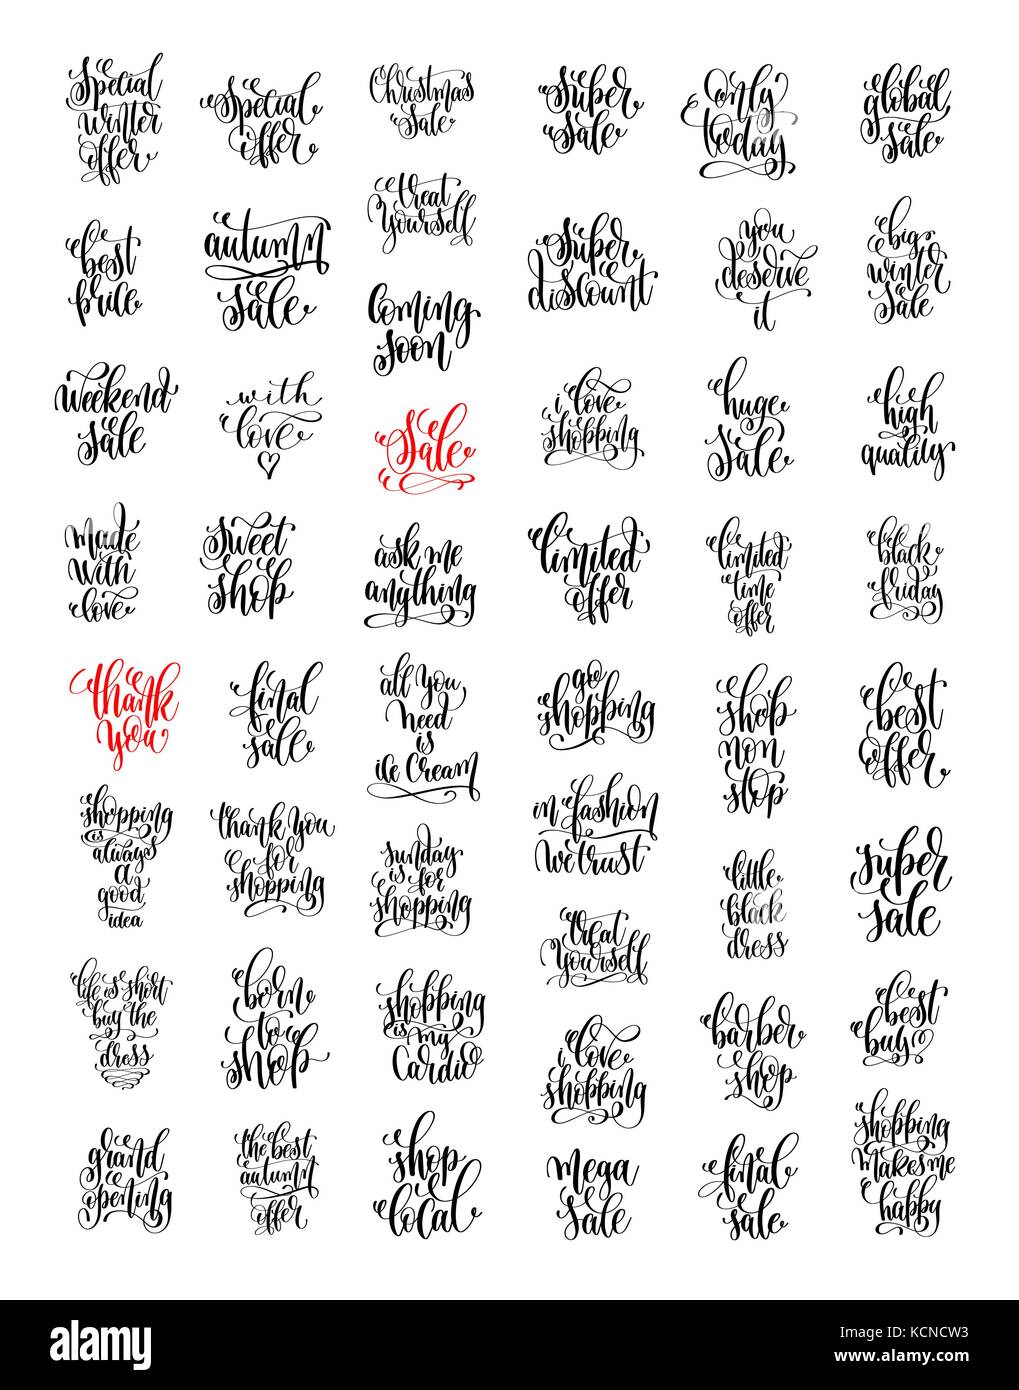 special
winter
offer
special
offer
Christmas
sale
super
sale
only
today
global
sale
treat
yourself
best
price
autumn
sale
coming
soon
super
discount
you
deserve
it
big
winter
sale
weekend
sale
with
love
sale
i love
shopping
huge
sale
high
quality
made
with
love
sweet
shop
ask me
anything
limited
offer
limited
time
offer
black
friday
thank
you
final
sale
all you
need
is
ice cream
go
shopping
shop
non
stop
best
offer
shopping
is
always
a
good
idea
thank you
for
shopping
sunday
is for
shopping
in fashion
we trust
little
black
dress
super
sale
life is short
buy the
dress
born
to
shop
shopping
is my
cardio
treat
yourself
i love
shopping
barber
shop
best
buy
grand
opening
the best
autumn
offer
shop
local
mega
sale
final
sale
shopping
makes me
happy
alamy
Image ID: KCNCW3
www.alamy.com